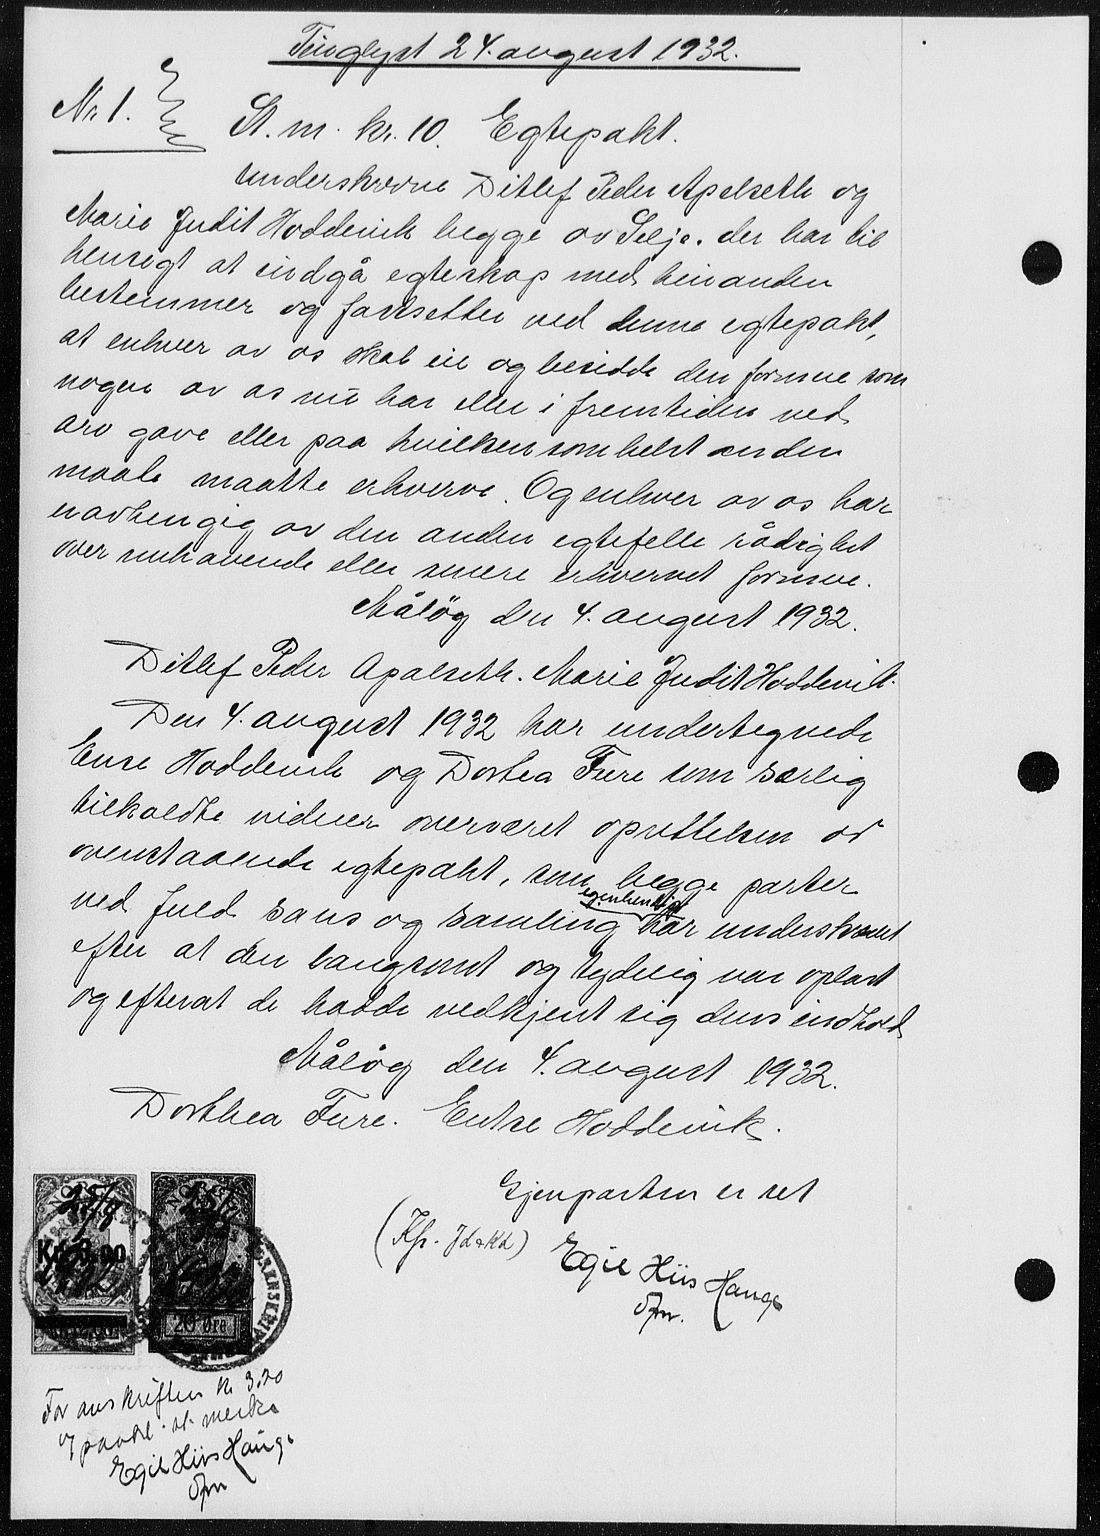 Tinglyst 24. august 1932.
Nr 1. St. m. kr. 10. Egtepakt.
Underskrevne Ditlef Peder Apelseth og
Marie Judit Hoddevik begge av Selje. der har til
hensigt at indgå egteskap med hinanden
bestemmer og fastsetter ved denne egtepakt,
at enhver av os skal eie og besidde den formue som
nogen av os nu har eller i fremtiden ved
arv gave eller paa hvilkensomhelst anden
maate maatte erhverve. Og enhver av os har
uavhengig av den anden egtefelle rådighet
over nuhavende eller senere erhvervet formue.
Måløy den 4. august 1932.
Ditlef Peder Apalseth. Marie Judit Hoddevik.
Den 4. august 1932 har undertegnede
Hoddevik og Dorthea Fure som særlig
tilkaldte vidner overværet oprettelsen av
ovenstaaende egtepakt, som begge parter
ved fuld sans og samling egenhendigt har underskrevet
efter at den langsomt og tydelig var oplæst
og efterat de hadde vedkjent sig dens indhold
Måløy den 4. august 1932.
Dorthea Fure. Hoddevik.
Gjenparten er set
Egil Hiis Hauge
20 Øre
For avskriften kr 3.20
Egil Hiis Hauge